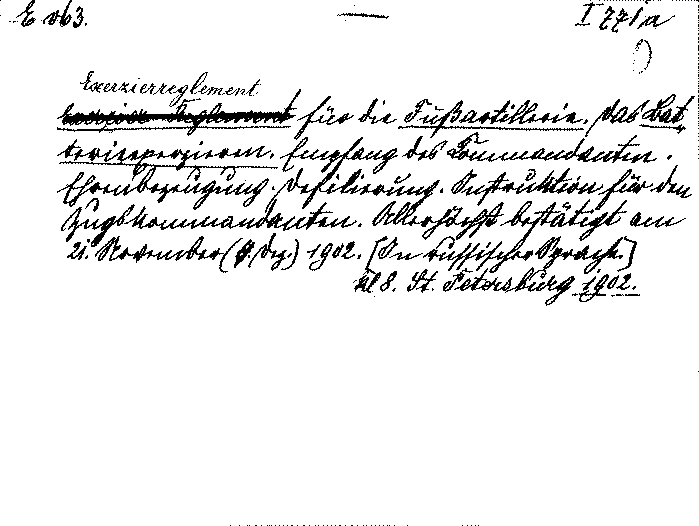 E 063. — I 771/a
Exerzierreglement
Exerzier Reglement für die Fußartillerie. Das Bat„
terieexerzieren. Empfang des Commandanten.
Ehrenbezeugung. Defilierung. Instruktion für den
Zugskommandanten. Allerhöchst bestätigt am
21. November (4. Dez.) 1902. [In russischer Sprache.]
kl 8. St. Petersburg 1902.